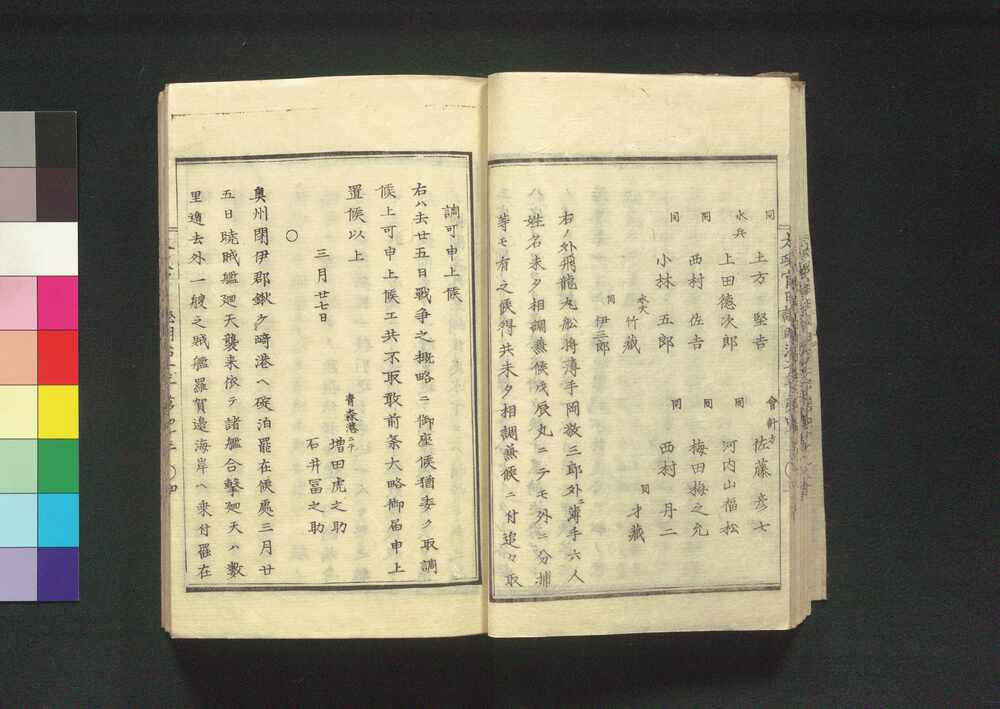 同 土方堅吉 會計方 佐藤彦七
水兵 上田德次郎 同 河内山福松
同 西村佐吉 同 梅田梅之允
同 小林五郎 同 西村丹二
水夫 竹藏 同 才藏
同 伊三郎
右ノ外飛龍丸舩将薄手岡敬三郎外ニ薄手六人
姓名未タ相調兼候戊辰丸ニテモ外ニ分捕
等モ有之候得共未夕相調兼候ニ付追々取
調可申上候
右ハ去廿五日戰争之概略ニ御座候猶委ク取調
候上可申上候エ共不取敢前条大略御届申上
置候以上
三月廿七日
青森港ニテ 増田虎之助
石井冨之助
〇
奥州閉伊郡鍬ケ﨑港ヘ碇泊罷在候處三月廿
五日暁賊艦廻天襲来依テ諸艦合撃廻天ハ數
里逈去外一艘之賊艦羅賀邉海岸ヘ乗付罷在